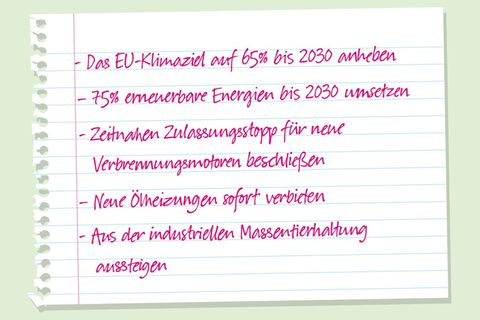 - Das EU-Klimaziel auf 65% bis 2030 anheben
- 75% erneuerbare Energien bis 2030 umsetzen
- Zeitnahen Zulassungsstopp für neue
Verbrennungsmotoren beschließen
- Neue Ölheizungen sofort verbieten
- Aus der industriellen Massentierhaltung
aussteigen